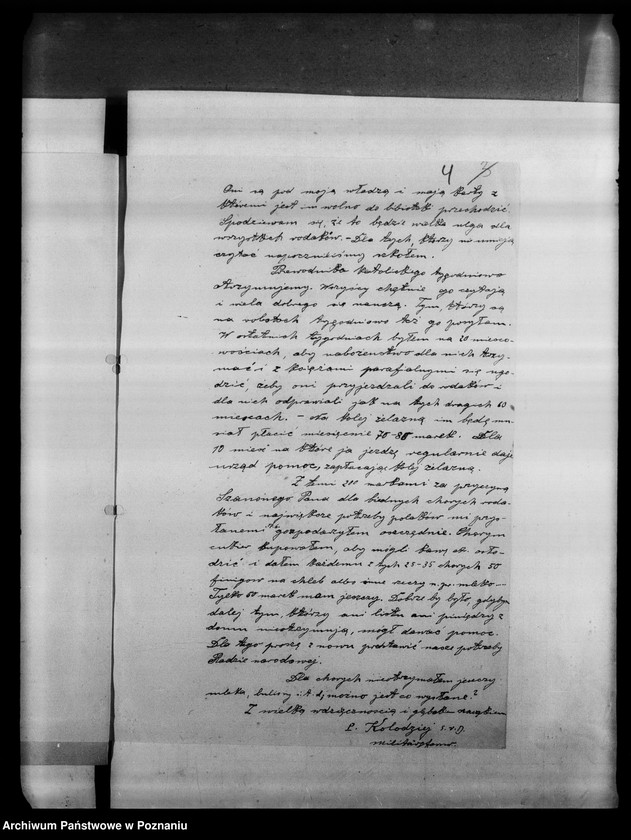 4 75
Oni są pod moją władzą i mają karty z
któremi jest im wolno do bibliotek przechodzić.
Spodziewam się, że to będzie wielka ulga dla
wszystkich rodaków. – Dla tych, którzy nie umieją
czytać rozpoczniśmy szkołem.
Przewodnika katolickiego tygodniowo
otrzymujemy. Wszyscy chętnie go czytają
i wiele dobrego się nauczą. Tym, którzy są
na robotach tygodniowo też go posyłam.
W ostatnich tygodniach byłem na 20 miejsco-
wościach, aby nabożeństwo dla nich trzy-
mać i z księżami parafialnymi się ugo-
dzić, żeby oni przyjeżdzali do rodaków i
dla nich odprawiali jak na tych drugich 60
miejscach. – Za kolej żelazną im będę mu-
siał płacić miesięcznie 70-80 marek. Dla
10 miejsc na które ja jeżdżę regularnie daje
urząd pomoc, zapłacając kolej żelazną.
Z temi 200 markami za przyczyną
Szanownego Pana dla biednych chorych roda-
ków i największe potrzeby polaków mi przy-
słanemi gospodarzyłem oszczędnie. Chorym
cukier kupowałem, aby mogli kawę ob. sło-
dzić i dałem każdemu z tych 25-35 chorych 50
finigów na chleb albo inne rzeczy n.p. mleko. –
Tylko 60 marek mam jeszczy. Dobrze by było, gdybym
dalej tym, którzy ani listu ani pieniędzy z
domu nieotrzymują, mógł dawać pomoc.
Dla tego proszę z nowu przedstawić nasze potrzeby
Radzie narodowej.
Dla chorych nieotrzymałem jeszczy
mleka, buliony i.t.d., możno jest co wysłane?
Z wielką wdzięcznością i głębokim szacunkiem
P. Kolodziej S.V.D.
Archiwum Państwowe w Poznaniu